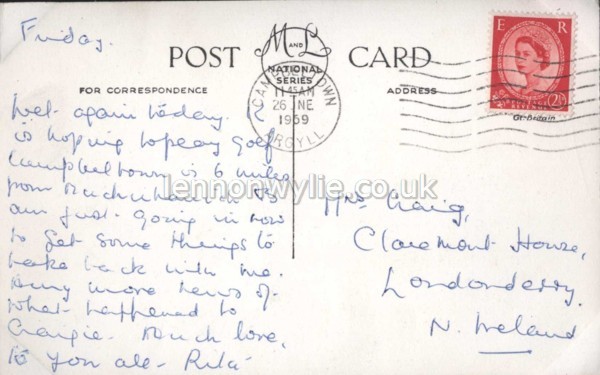 Friday.
POST CARD
M AND L
NATIONAL
SERIES
FOR CORRESPONDENCE
ADDRESS
CAMPBELTOWN
11.45AM
26 JNE
1959
ARGYLL
E R
POSTAGE
2½D
Gt. Britain
Wet again today. R
is hoping to play golf
Campbeltown is 6 miles
from Machrihanish
am just going in now
to get some things to
take back with me.
Any more news of
what happened to
Craigie. Much love,
to you all - Rita
Mrs Craig,
Claremont House,
Londonderry.
N. Ireland
lennonwylie.co.uk